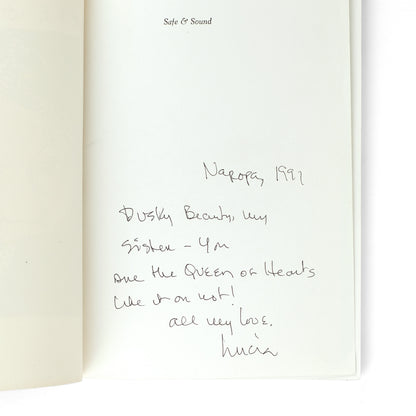 Safe & Sound
Naropa, 1991
Dusky Beauty, my
sister - You
are the Queen of Hearts
like it or not!
all my love,
Lucia